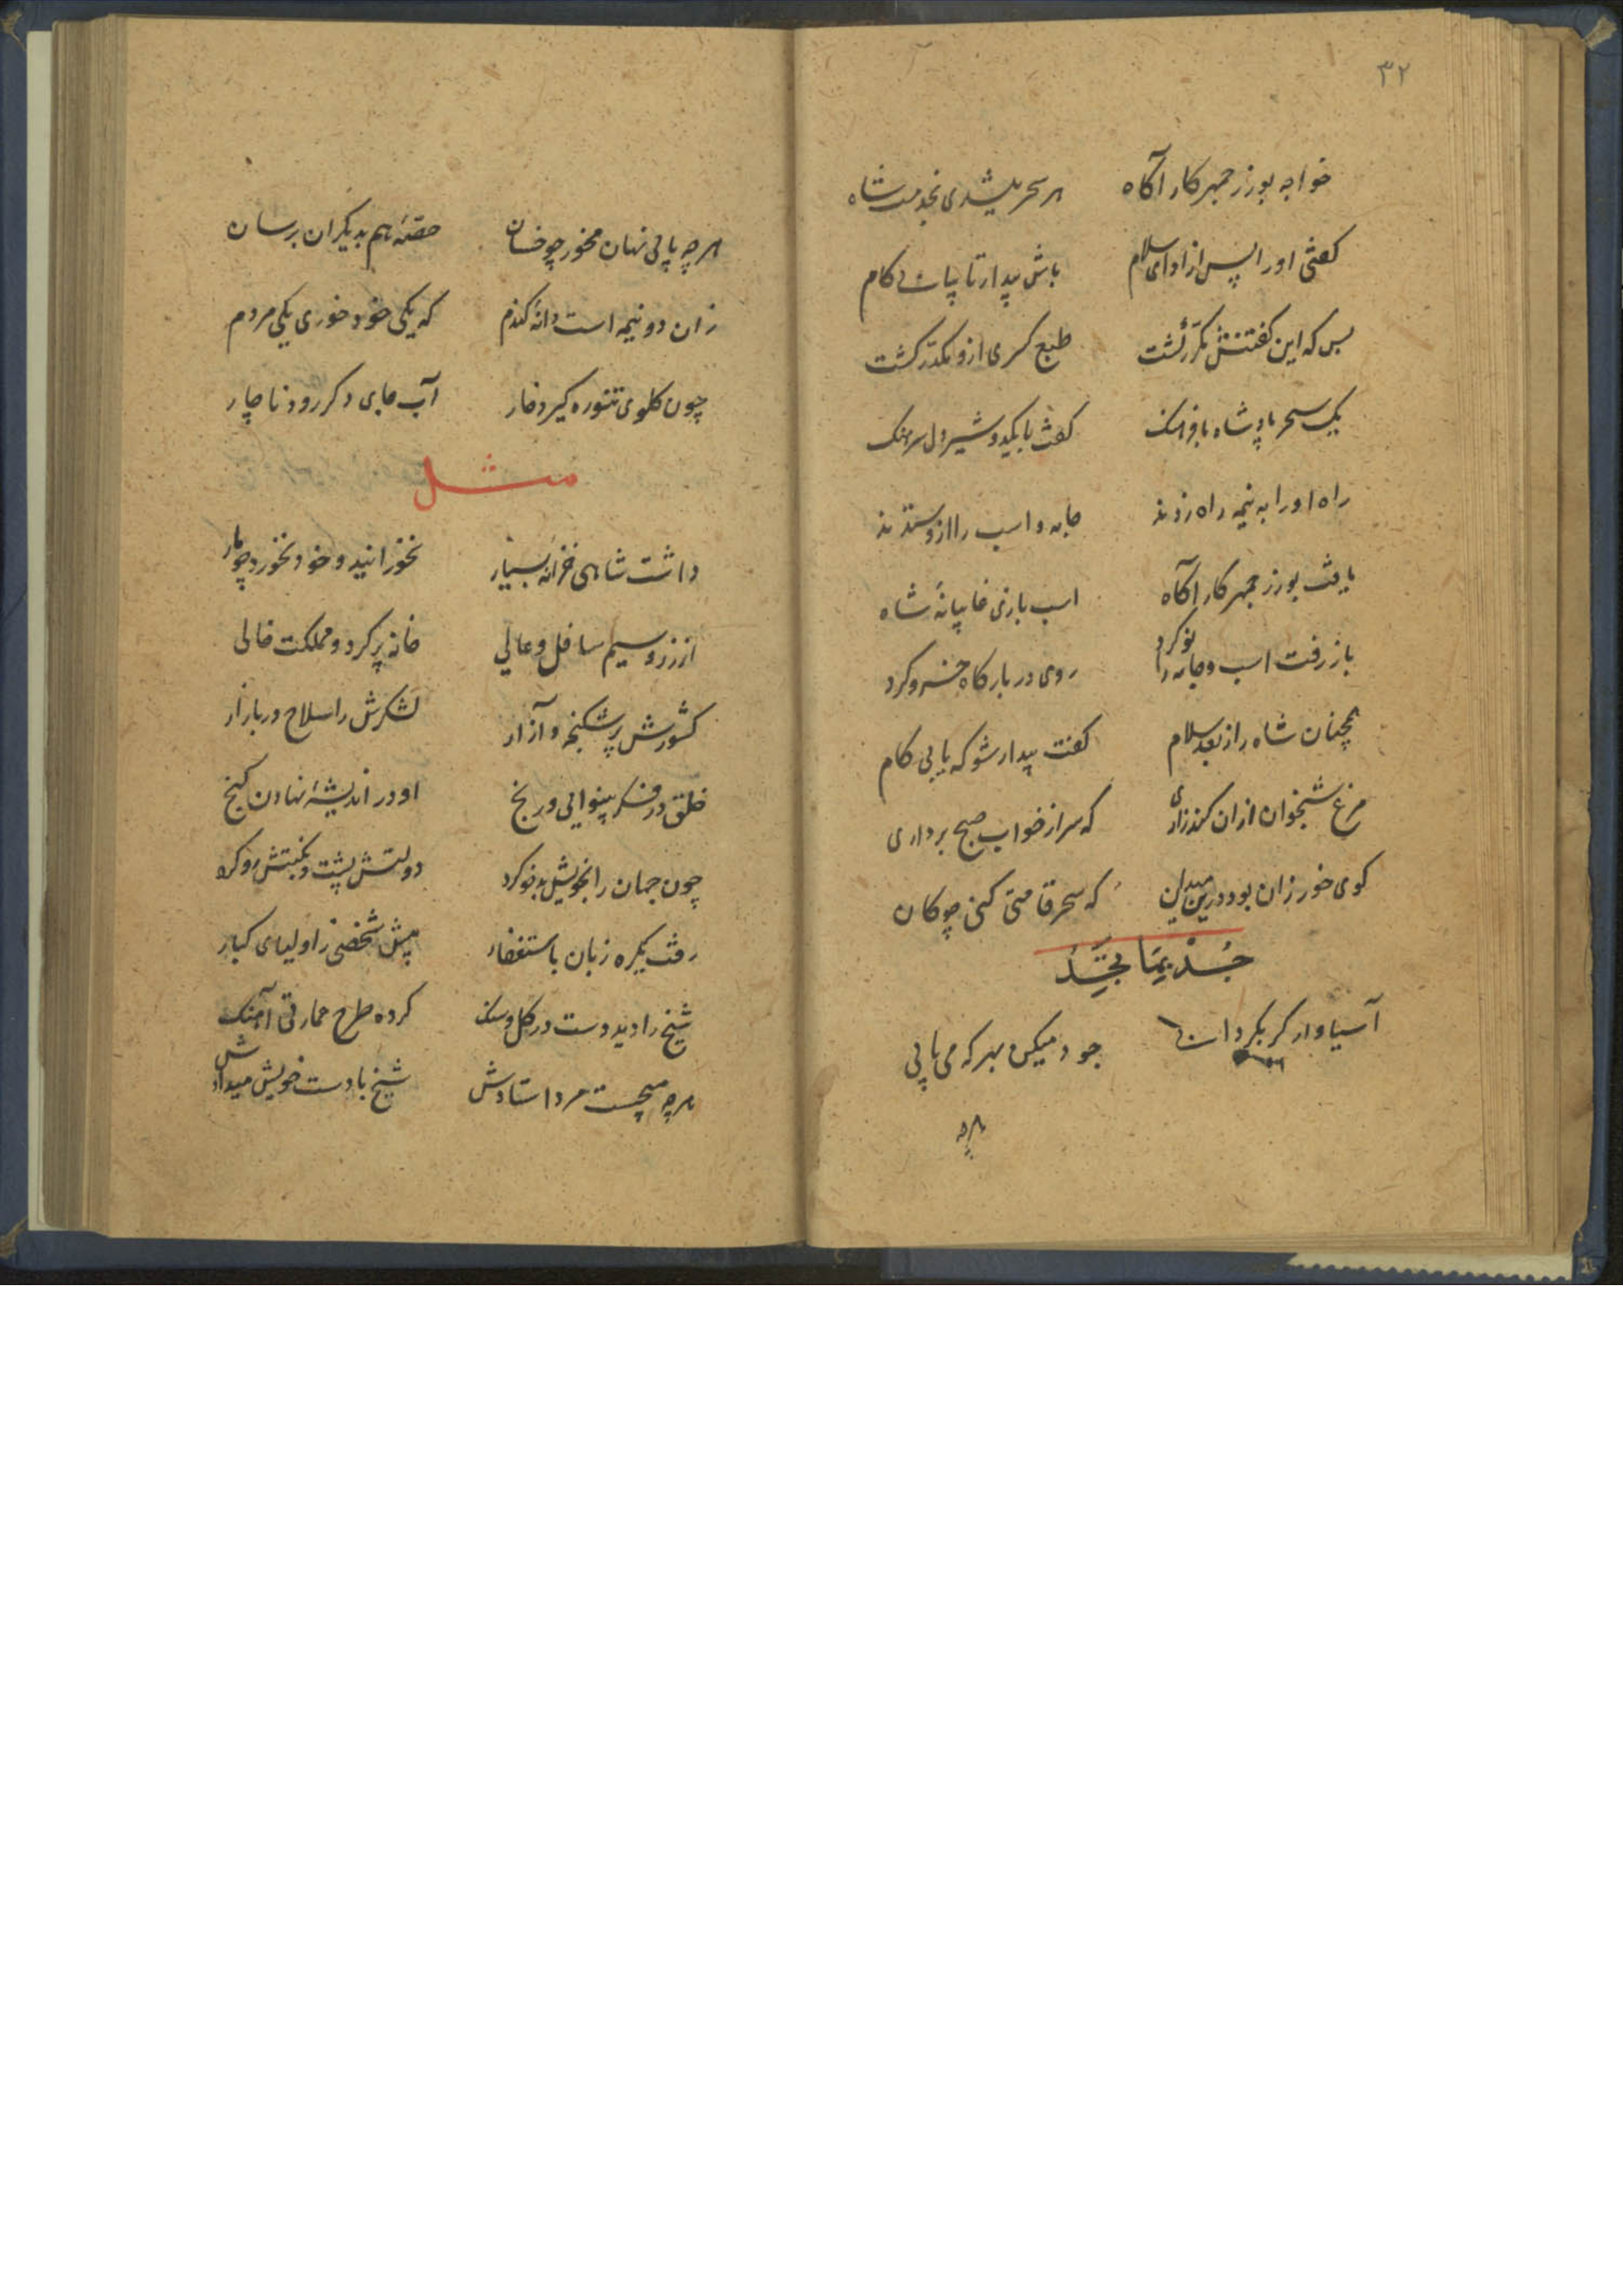 ۳۲
خواجه بوزرجمهر کار آگاه هر سحر میشدی بخدمت شاه
کفتی او را پس از ادای سلام باش بیدار تا بیابی کام
بس که این کفتنش مکرر کشت طبع کسری ازو مکدر کشت
یک سحر پادشاه بافرهنک کفت با یکدو شیردل سرهنک
راه او را به نیمه راه زدند جامه و اسب را ازو ستدند
یافت بوزرجمهر کار آگاه اسب بازی غایبانهٔ شاه
باز رفت اسب و جامه را نو کرد روی در بارکاه خسرو کرد
همچنان شاه را ز بعد سلام کفت بیدار شو که یابی کام
مرغ شبخوان از ان کند زاری که سر از خواب صبح برداری
کوی خور زان بود درین میدان که سحر قامتی کنی چوکان
جُدْ بِمَا تَجِدُ
آسیاوار کر بکردانی جود میکن بهر که می یابی
هرچه
هر چه یابی نهان مخور چو خسان حصهٔ هم بدیکران برسان
زان دو نیمه است دانهٔ کندم که یکی خود خوری یکی مردم
چون کلوی تنوره کیرد خار آب جای دکر رود ناچار
مثل
داشت شاهی خزانهٔ بسیار نخورانید و خود نخورد چو مار
از زر و سیم سافل و عالی خانه پر کرد و مملکت خالی
کشورش پر شکنجه و آزار لشکرش را سلاح در بازار
خلق در فکر بینوایی و رنج او در اندیشهٔ نهادن کنج
چون جهان را بخویش بدخو کرد دولتش پشت و نکبتش رو کرد
رفت یکره زبان باستغفار پیش شخصی ز اولیای کبار
شیخ را دید دست در کل و سنک کرده طرح عمارتی آهنک
هر چه میجست مرد استادش شیخ با دست خویش میدادش